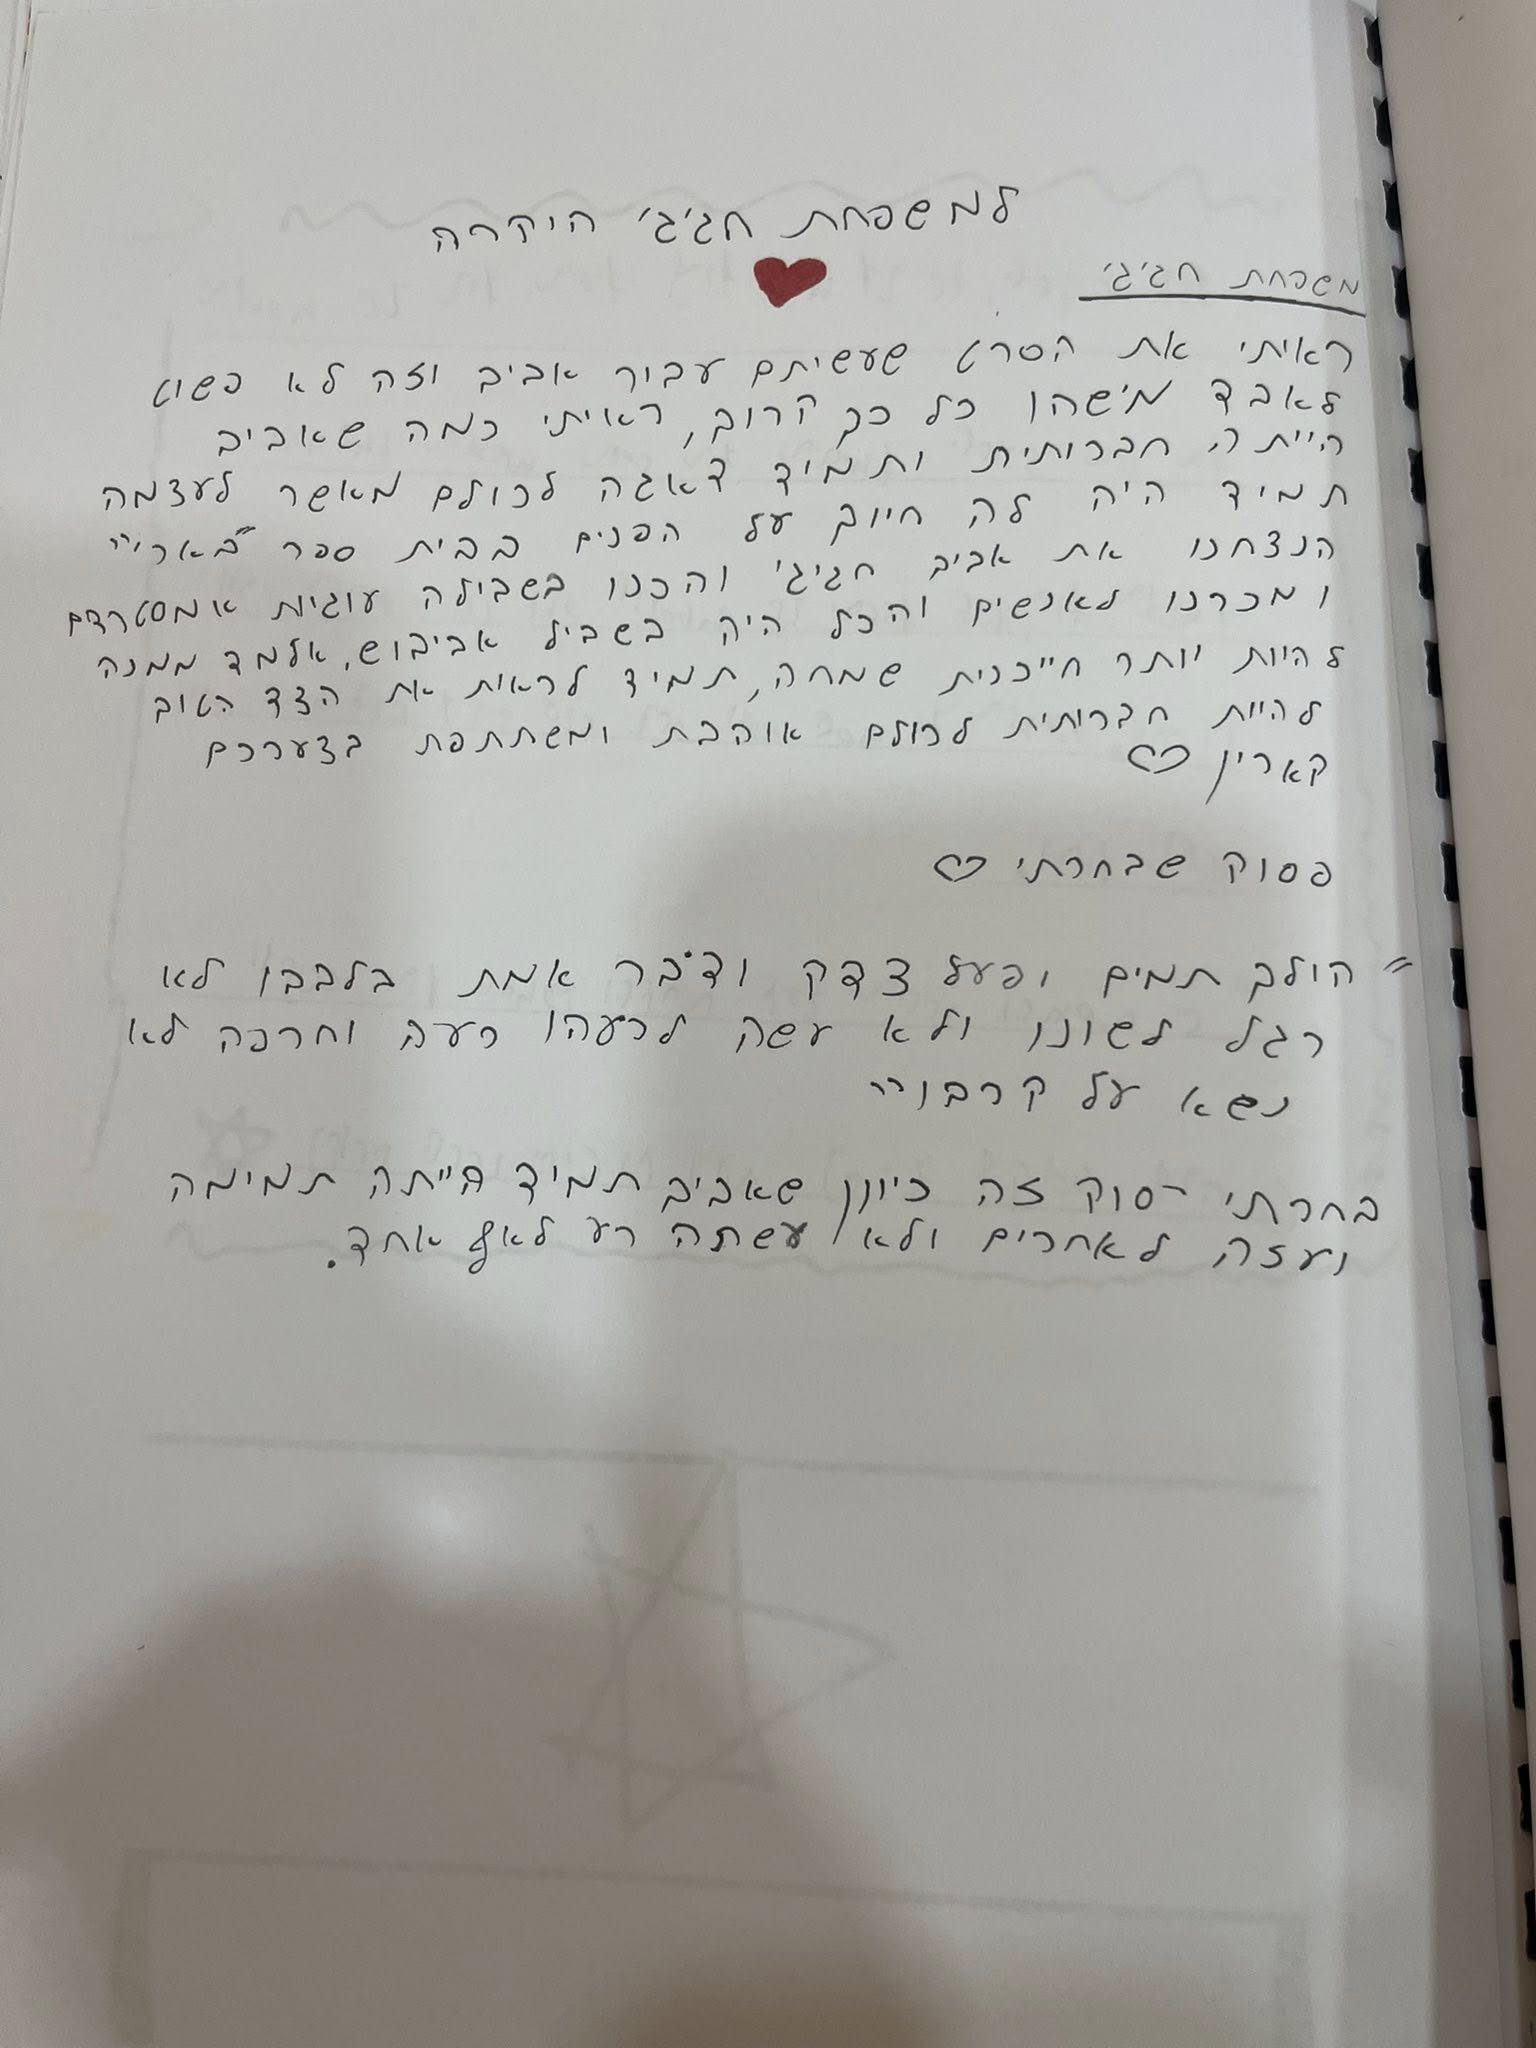 למשפחת חג'ג' היקרה
משפחת חג'ג'
ראיתי את הסרט שעשיתם עבור אביב וזה לא פשוט
לאבד מישהו כל כך קרוב, ראיתי כמה שאביב
הייתה חברותית ותמיד דאגה לכולם מאשר לעצמה
תמיד היה לה חיוך על הפנים בבית ספר "בארי"
הנצחנו את אביב חגיג' והכנו בשבילה עוגיות אמסטרדם
ומכרנו לאנשים והכל היה בשביל אביבוש, אלמד ממנה
להיות יותר חייכנית שמחה, תמיד לראות את הצד הטוב
להיות חברותית לכולם אוהבת ומשתתפת בצערכם
קארין ♡
פסוק שבחרתי ♡
"הולך תמים ופעל צדק ודבר אמת בלבבו לא
רגל לשונו ולא עשה לרעהו רעה וחרפה לא
נשא על קרבו"
בחרתי פסוק זה כיוון שאביב תמיד הייתה תמימה
ועזה לאחרים ולא עשתה רע לאף אחד.